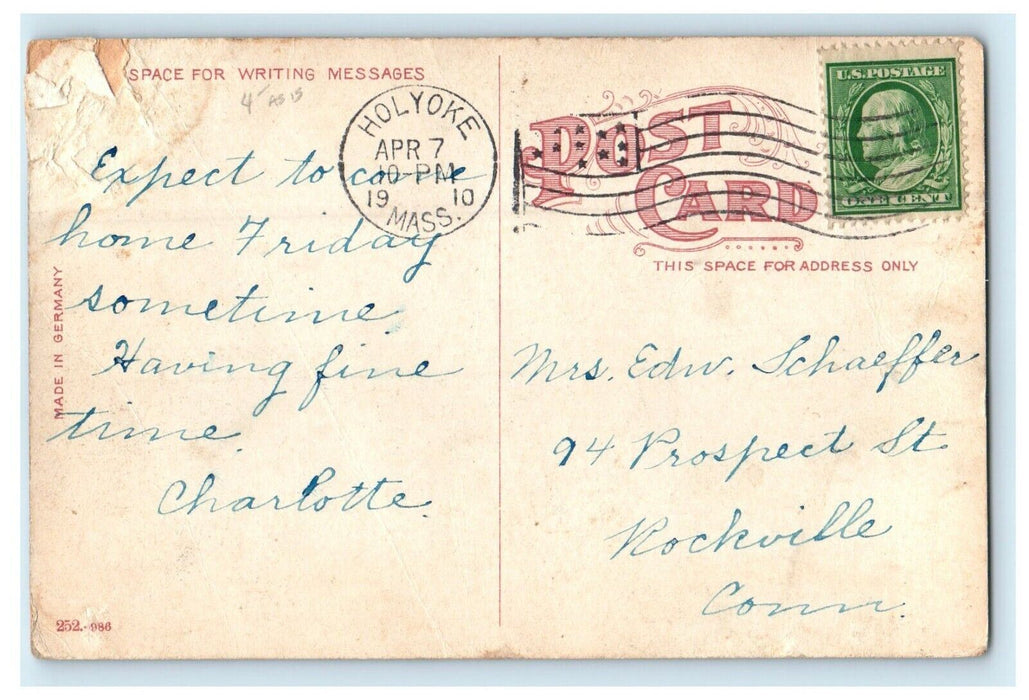 SPACE FOR WRITING MESSAGES
4- AS IS
Expect to come
home Friday
sometime.
Having fine
time.
Charlotte.
MADE IN GERMANY
252.-986
HOLYOKE
APR 7
10-PM
19 10
MASS.
POST
CARD
THIS SPACE FOR ADDRESS ONLY
U.S. POSTAGE
ONE CENT
Mrs. Edw. Schaeffer
94 Prospect St
Rockville
Conn.